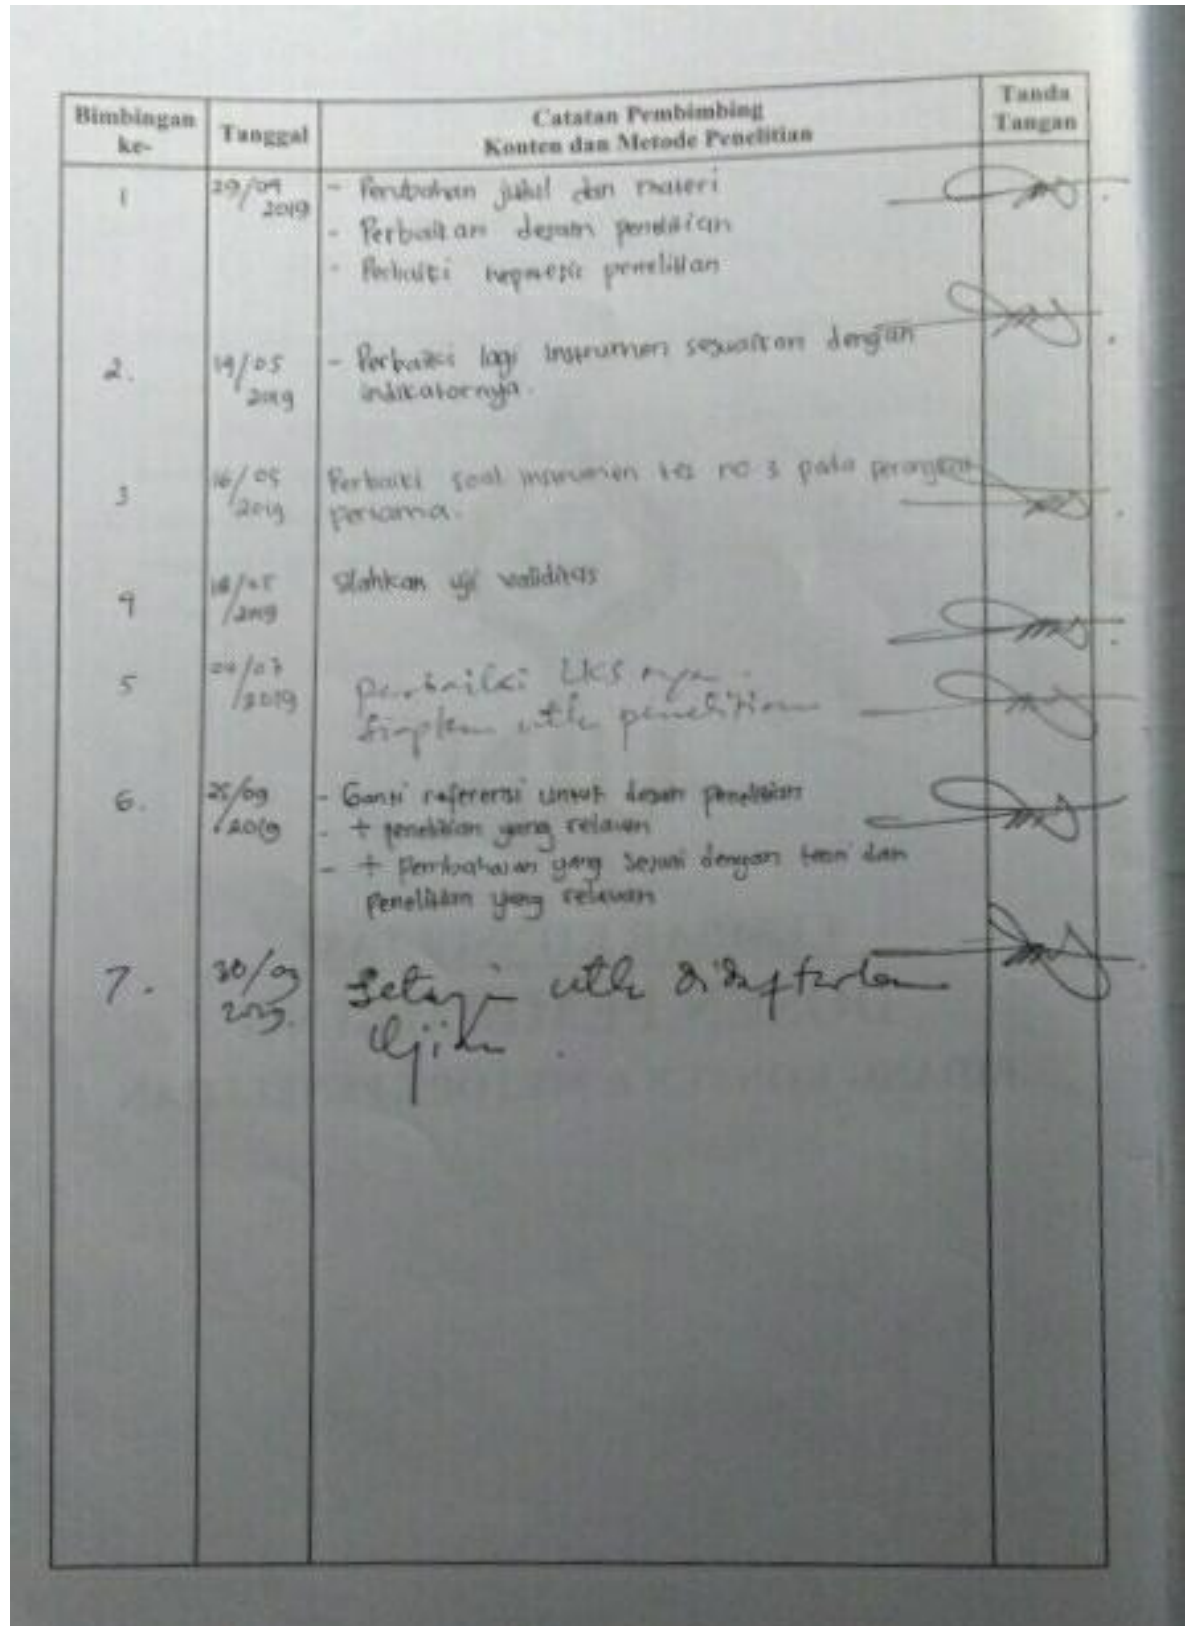 Bimbingan ke-
Tanggal
Catatan Pembimbing
Konten dan Metode Penelitian
Tanda Tangan
1
29/04
2019
- Perubahan judul dan materi
- Perbaikan desain penelitian
- Perbaiki penelitian
2.
14/05
2019
- Perbaiki lagi instrumen sesuaikan dengan
indikatornya.
3
16/05
2019
Perbaiki soal instrumen tes no 3 pada
pertama.
4
18/05
2019
Silahkan uji validitas
5
/07
2019
perbaiki LKS nya
Siapkan utk penelitian
6.
25/09
2019
- Ganti referensi untuk desain penelitian
- + penelitian yang relevan
- + Pembahasan yang sesuai dengan teori dan
penelitian yang relevan
7.
30/09
2019.
Setuju utk didaftarkan
Ujian.